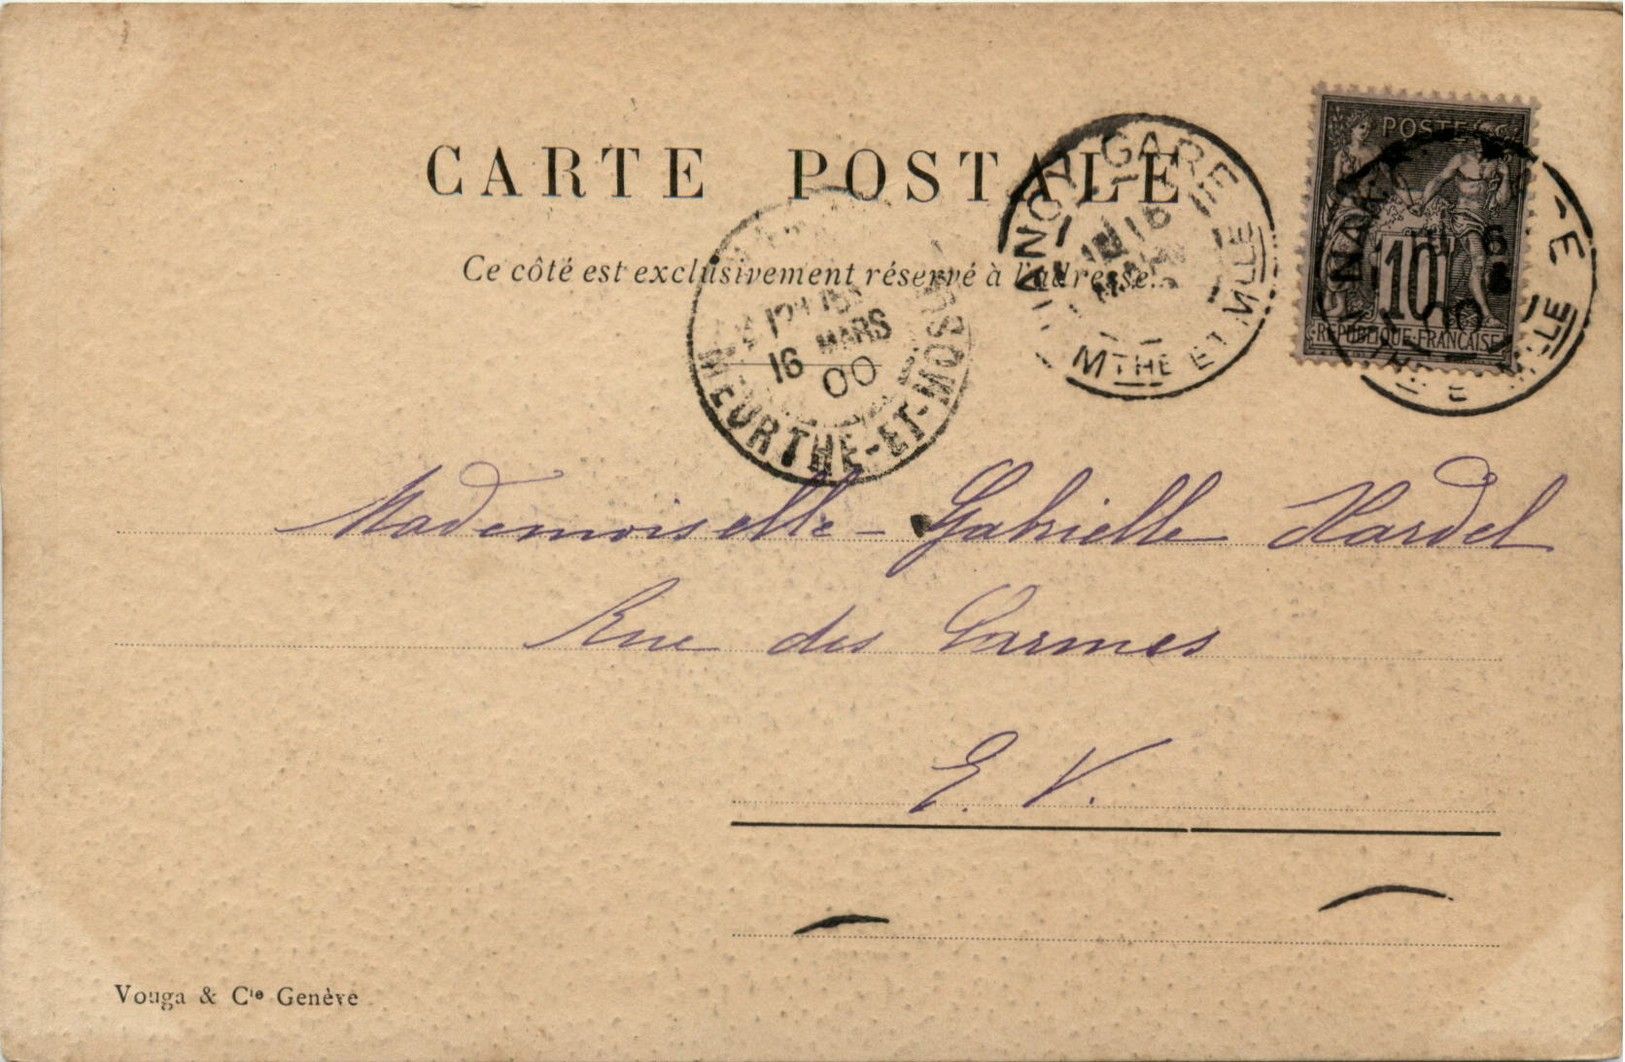 CARTE POSTALE
Ce côté est exclusivement réservé à l'adresse.
NANCY GARE
16
MARS
MTHE ET MLLE
POSTES
10
REPUBLIQUE FRANÇAISE
16 MARS
00
MEURTHE-ET-MOSELLE
Mademoiselle - Gabrielle Hardel
Rue des Carmes
E. V.
Vouga & Cie Genève